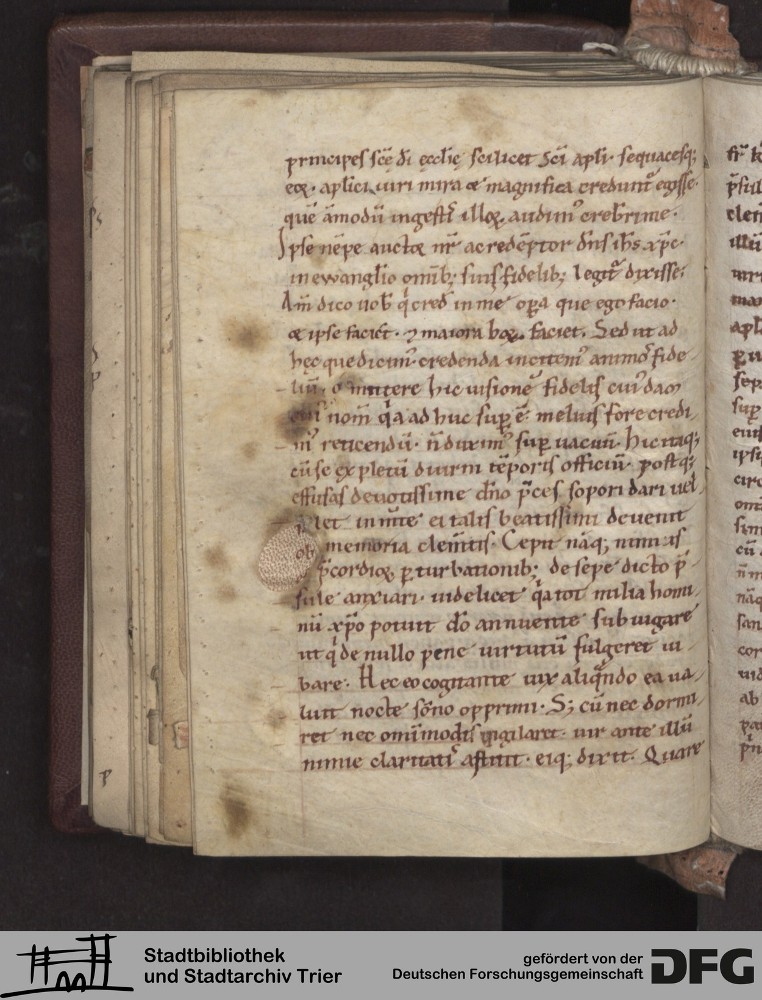 principes scē dī ęcclię scilicet Scī apli· sequacesq;
eoꝝ· aplici uiri mira & magnifica credunt᷑ egisse·
que āmodū in gestis illoꝝ audim᷒ creberrime·
Ipse nēpe auctor nr̄ ac redēptor dn̄s ihs xp̄c·
in ewanglio omīb; suis fidelib; legit᷑ dixisse·
Am̄ dico uob̄ q̇ cred in me opera que ego facio·
& ipse faciet· ⁊ maiora hoꝝ faciet. Sed ut ad
hęc que dicim᷒ credenda incitem᷒ animos fide
liū· mittere hic uisionē fidelis cui᷒dam
nom̄ q̇a ad huc sup̄ ē· melius fore credi
m᷒ reticendū· n̄ duxim᷒ sup uacuū· hic itaq;
cū se expletū diuini tēporis officiū· post q;
effusas deuotissime dn̄o p̄ces sopori dari uel
let in mīte ei talis beatissimi deuenit
ob memoria clemtis. Cepit nāq; nimiis
p̄cordioꝝ ꝑturbationib; de sepe dicto p̄
sule anxiari· uidelicet q̇a tot milia homi
nū xp̄o potuit dō annuente subiugare
ut q̇ de nullo pene uirtutū fulgeret iu
bare· Hec eo cogitante uix aliq̇ndo ea ua
luit nocte sōno opprimi· S; cū nec dormi
ret nec omīmodis uigilaret· uir ante illū
nimie claritatis astitit· eiq; dixit. Quare
Stadtbibliothek
und Stadtarchiv Trier
gefördert von der
Deutschen Forschungsgemeinschaft
DFG